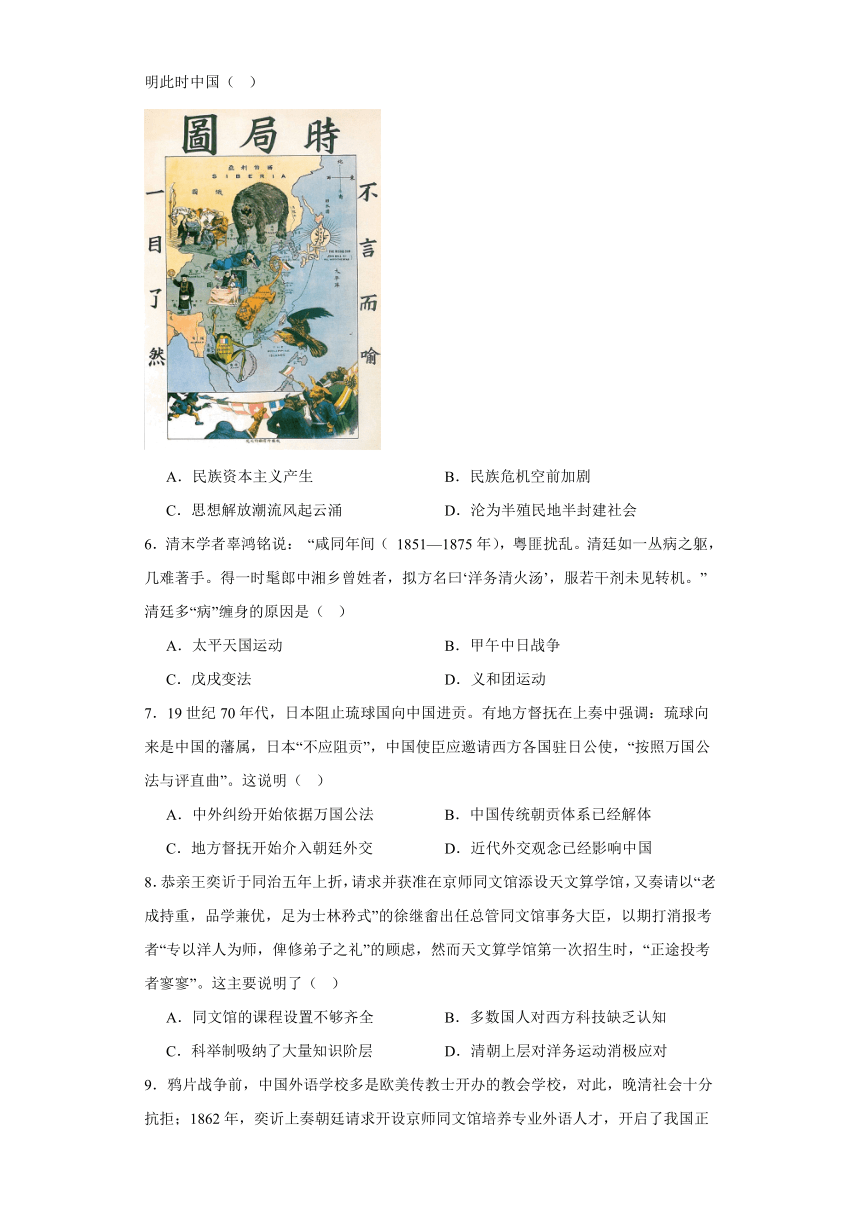 明此时中国（ ）
圖局時
不言而喻
一目了然
SIBERIA
A．民族资本主义产生 B．民族危机空前加剧
C．思想解放潮流风起云涌 D．沦为半殖民地半封建社会
6．清末学者辜鸿铭说： “咸同年间（ 1851—1875 年），粤匪扰乱。清廷如一丛病之躯，
几难著手。得一时髦郎中湘乡曾姓者，拟方名曰‘洋务清火汤’，服若干剂未见转机。”
清廷多“病”缠身的原因是（ ）
A．太平天国运动 B．甲午中日战争
C．戊戌变法 D．义和团运动
7．19 世纪 70 年代，日本阻止琉球国向中国进贡。有地方督抚在上奏中强调：琉球向
来是中国的藩属，日本“不应阻贡”，中国使臣应邀请西方各国驻日公使，“按照万国公
法与评直曲”。这说明（ ）
A．中外纠纷开始依据万国公法 B．中国传统朝贡体系已经解体
C．地方督抚开始介入朝廷外交 D．近代外交观念已经影响中国
8．恭亲王奕䜣于同治五年上折，请求并获准在京师同文馆添设天文算学馆，又奏请以“老
成持重，品学兼优，足为士林矜式”的徐继畬出任总管同文馆事务大臣，以期打消报考
者“专以洋人为师，俾修弟子之礼”的顾虑，然而天文算学馆第一次招生时，“正途投考
者寥寥”。这主要说明了（ ）
A．同文馆的课程设置不够齐全 B．多数国人对西方科技缺乏认知
C．科举制吸纳了大量知识阶层 D．清朝上层对洋务运动消极应对
9．鸦片战争前，中国外语学校多是欧美传教士开办的教会学校，对此，晚清社会十分
抗拒；1862 年，奕䜣上奏朝廷请求开设京师同文馆培养专业外语人才，开启了我国正